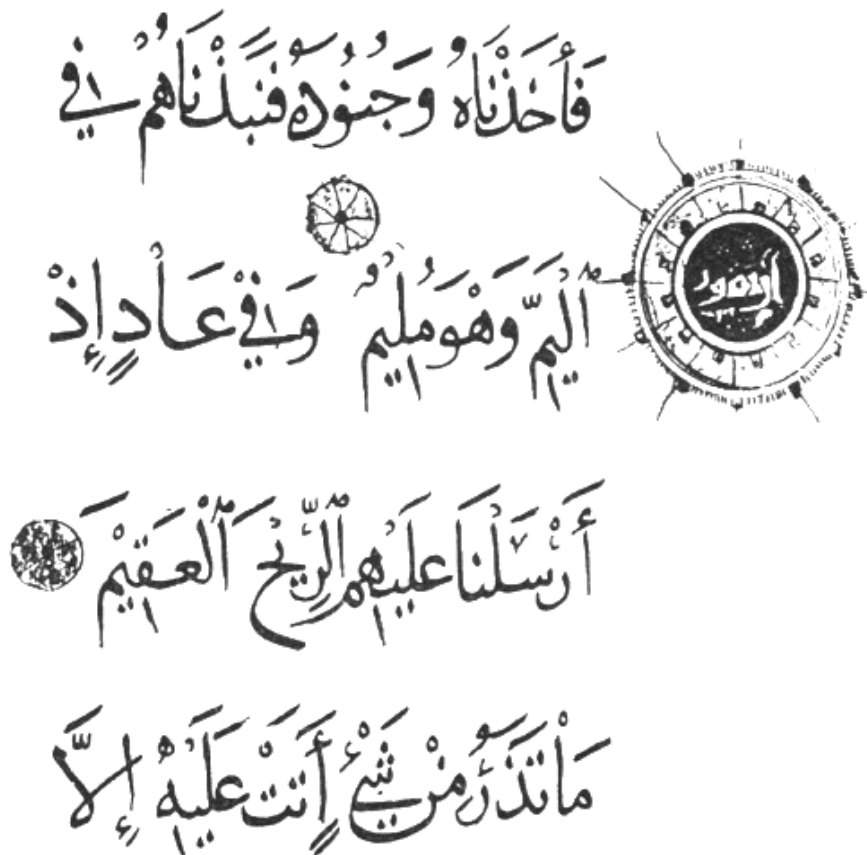 فَأَخَذْنَاهُ وَجُنُودَهُ فَنَبَذْنَاهُمْ فِي
الْيَمِّ وَهْوَ مُلِيمٌ وَفِيْ عَادٍ إِذْ
أَرْسَلْنَا عَلَيْهِمُ الرِّيْحَ الْعَقِيْمَ
مَاْ تَذَرُ مِنْ شَيْءٍ أَتَتْ عَلَيْهِ إِلَّا